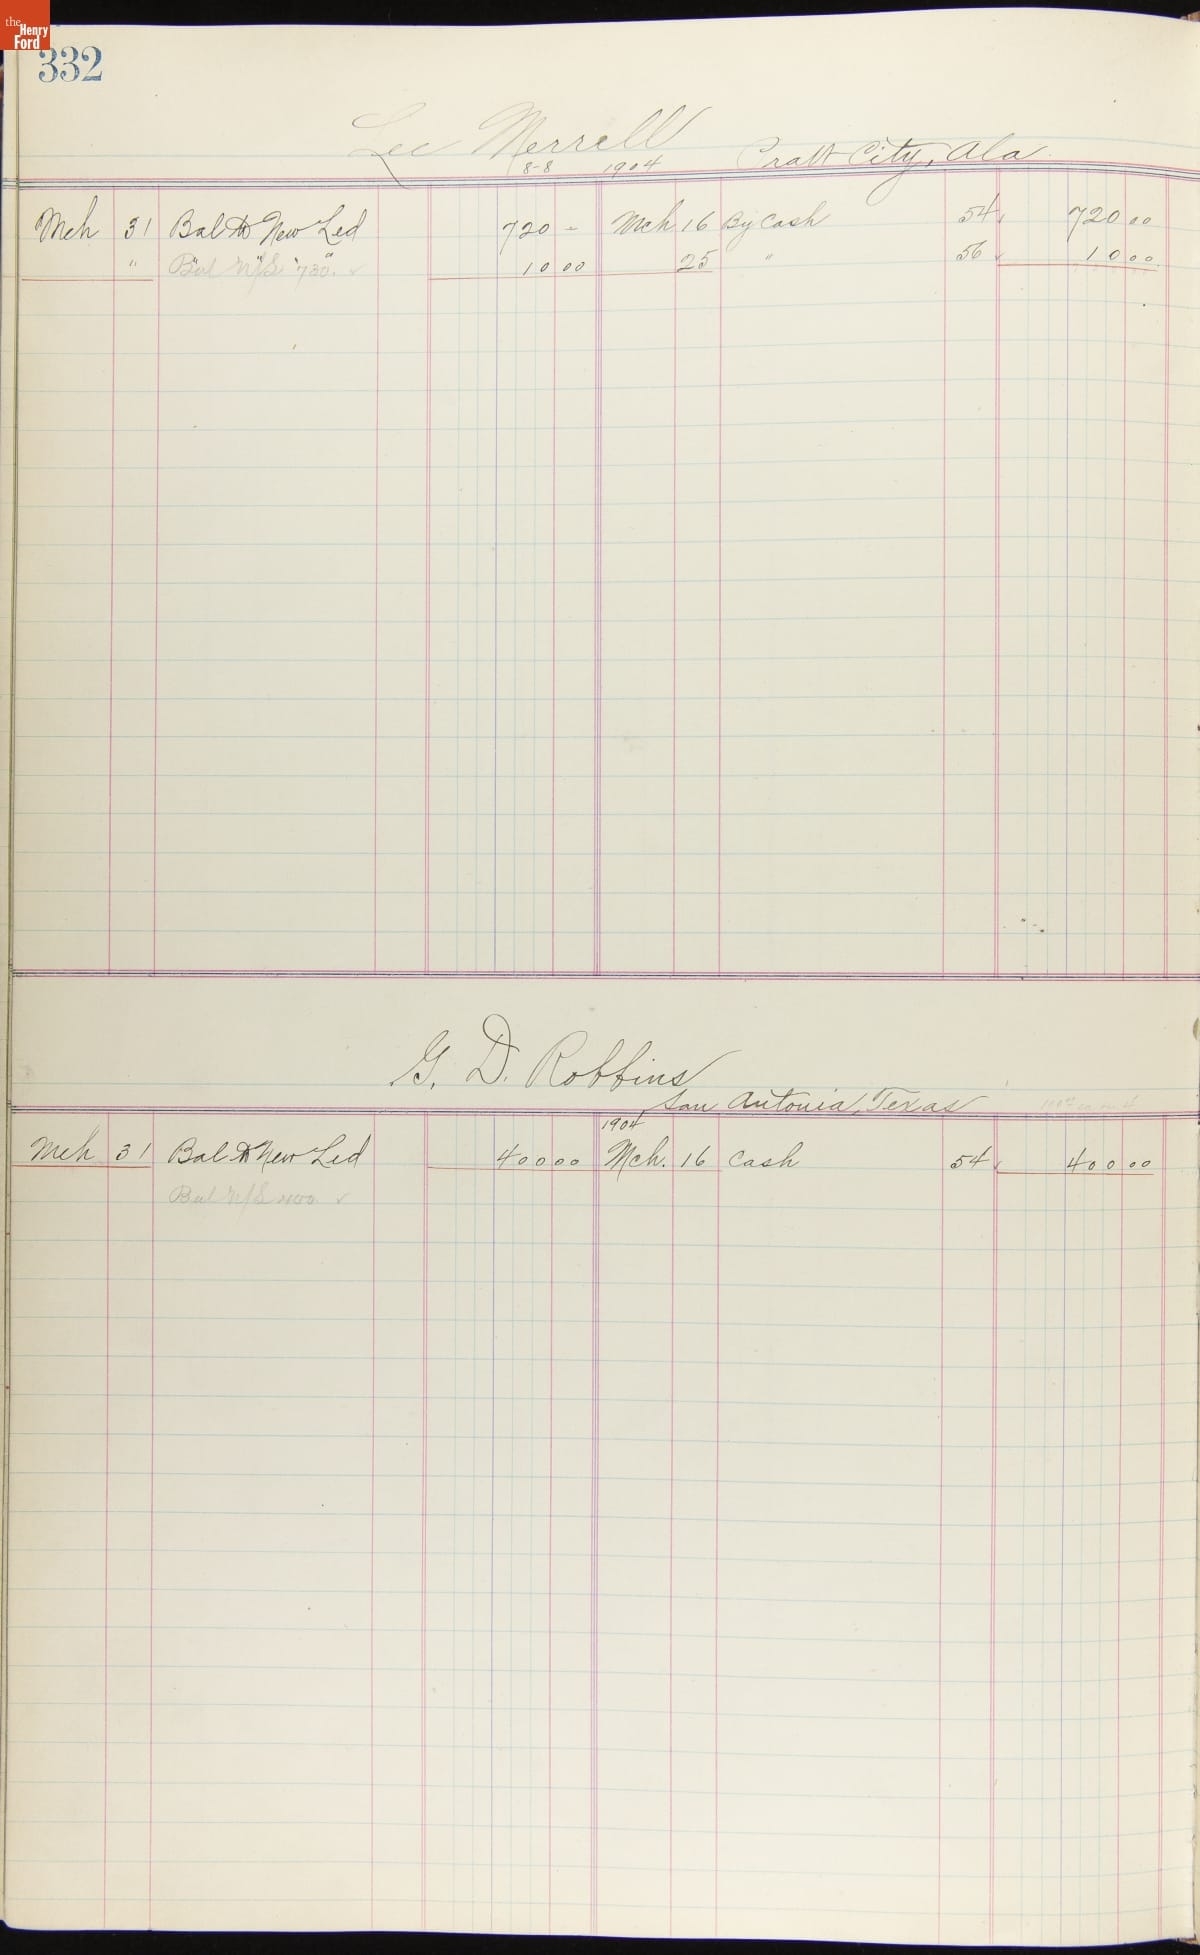 the Henry Ford
332
Lee Merrell
8-8 1904 Pratt City, Ala
Mch 31 Bal to New Led 720 - Mch 16 By Cash 54 720 00
" " " " 10 00 25 " 56 10 00
Bal 730.
G. D. Robbins
San Antonia, Texas
1904
Mch 31 Bal to New Led 400 00 Mch. 16 Cash 54 400 00
Bal